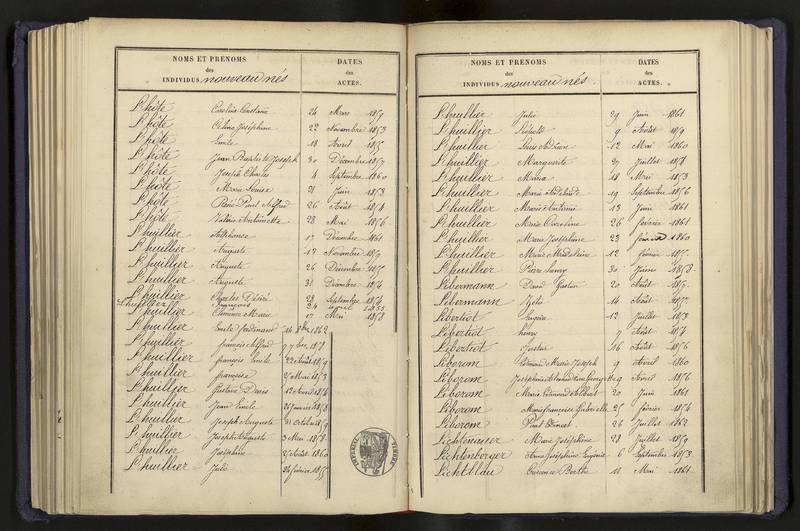 NOMS ET PRÉNOMS
des
INDIVIDUS, nouveau nés
DATES
des
ACTES.
L'hôte Caroline Constance 24 Mars 1859
L'hôte Célina Joséphine 22 Novembre 1853
L'hôte Emile 18 Avril 1855
L'hôte Jean Baptiste Joseph 30 Décembre 1857
L'hôte Joseph Charles 4 Septembre 1860
L'hôte Marie Louise 21 Juin 1853
L'hôte René Paul Alfred 26 Août 1854
L'hôte Antoinette 28 Mai 1856
Lhuillier Alphonse 17 Décembre 1861
Lhuillier Auguste 13 Novembre 1857
Lhuillier Auguste 26 Décembre 1855
Lhuillier Auguste 31 Décembre 1856
Lhuillier Charles Désiré 28 Septembre 1856
Lhuillier François 24 avril 1855
Lhuillier Clémence Marie 17 Mai 1858
Lhuillier Emile ferdinand 14 8bre 1862
Lhuillier françois Alfred 9 7bre 1858
Lhuillier françois Emile 22 Août 1859
Lhuillier françoise 2 Mai 1853
Lhuillier Gustave Denis 12 Avril 1856
Lhuillier Jean Emile 25 janvier 1858
Lhuillier Joseph Auguste 31 Octobre 1859
Lhuillier Joseph Auguste 3 Mai 1858
Lhuillier Joséphine 2 Août 1860
Lhuillier Julie 26 février 1855
TIMBRE
IMPÉRIAL
NOMS ET PRÉNOMS
des
INDIVIDUS, nouveau nés.
DATES
des
ACTES.
Lhuillier Julie 29 Juin 1861
Lhuillier 9 Août 1859
Lhuillier Louis 12 Mai 1860
Lhuillier Marguerite 27 Juillet 1858
Lhuillier Maria 18 Mai 1853
Lhuillier Marie Adélaïde 19 Septembre 1856
Lhuillier Marie 13 Juin 1861
Lhuillier Marie Caroline 26 février 1861
Lhuillier Marie Joséphine 23 1860
Lhuillier Marie Madeleine 12 février 1855
Lhuillier Pierre henry 30 Juin 1858
Libermann David Gaston 20 Août 1855
Libermann 14 Août 1857
Libertiot Eugène 12 Juillet 1853
Libertiot henry 7 Août 1854
Libertiot Justin 16 Août 1856
Liborom Edmond Marie Joseph 9 Avril 1860
Liborom Joséphine 9 Avril 1856
Liborom Marie Edmond Albert 20 Juin 1861
Liborom Marie françoise Gabrielle 25 février 1854
Liborom Paul Ernest 26 Juillet 1862
Lichtmiser Marie Joséphine 28 Juillet 1859
Lichtenberger Anne Joséphine Eugénie 6 Septembre 1853
Lichtllau Berthe 11 Mai 1861